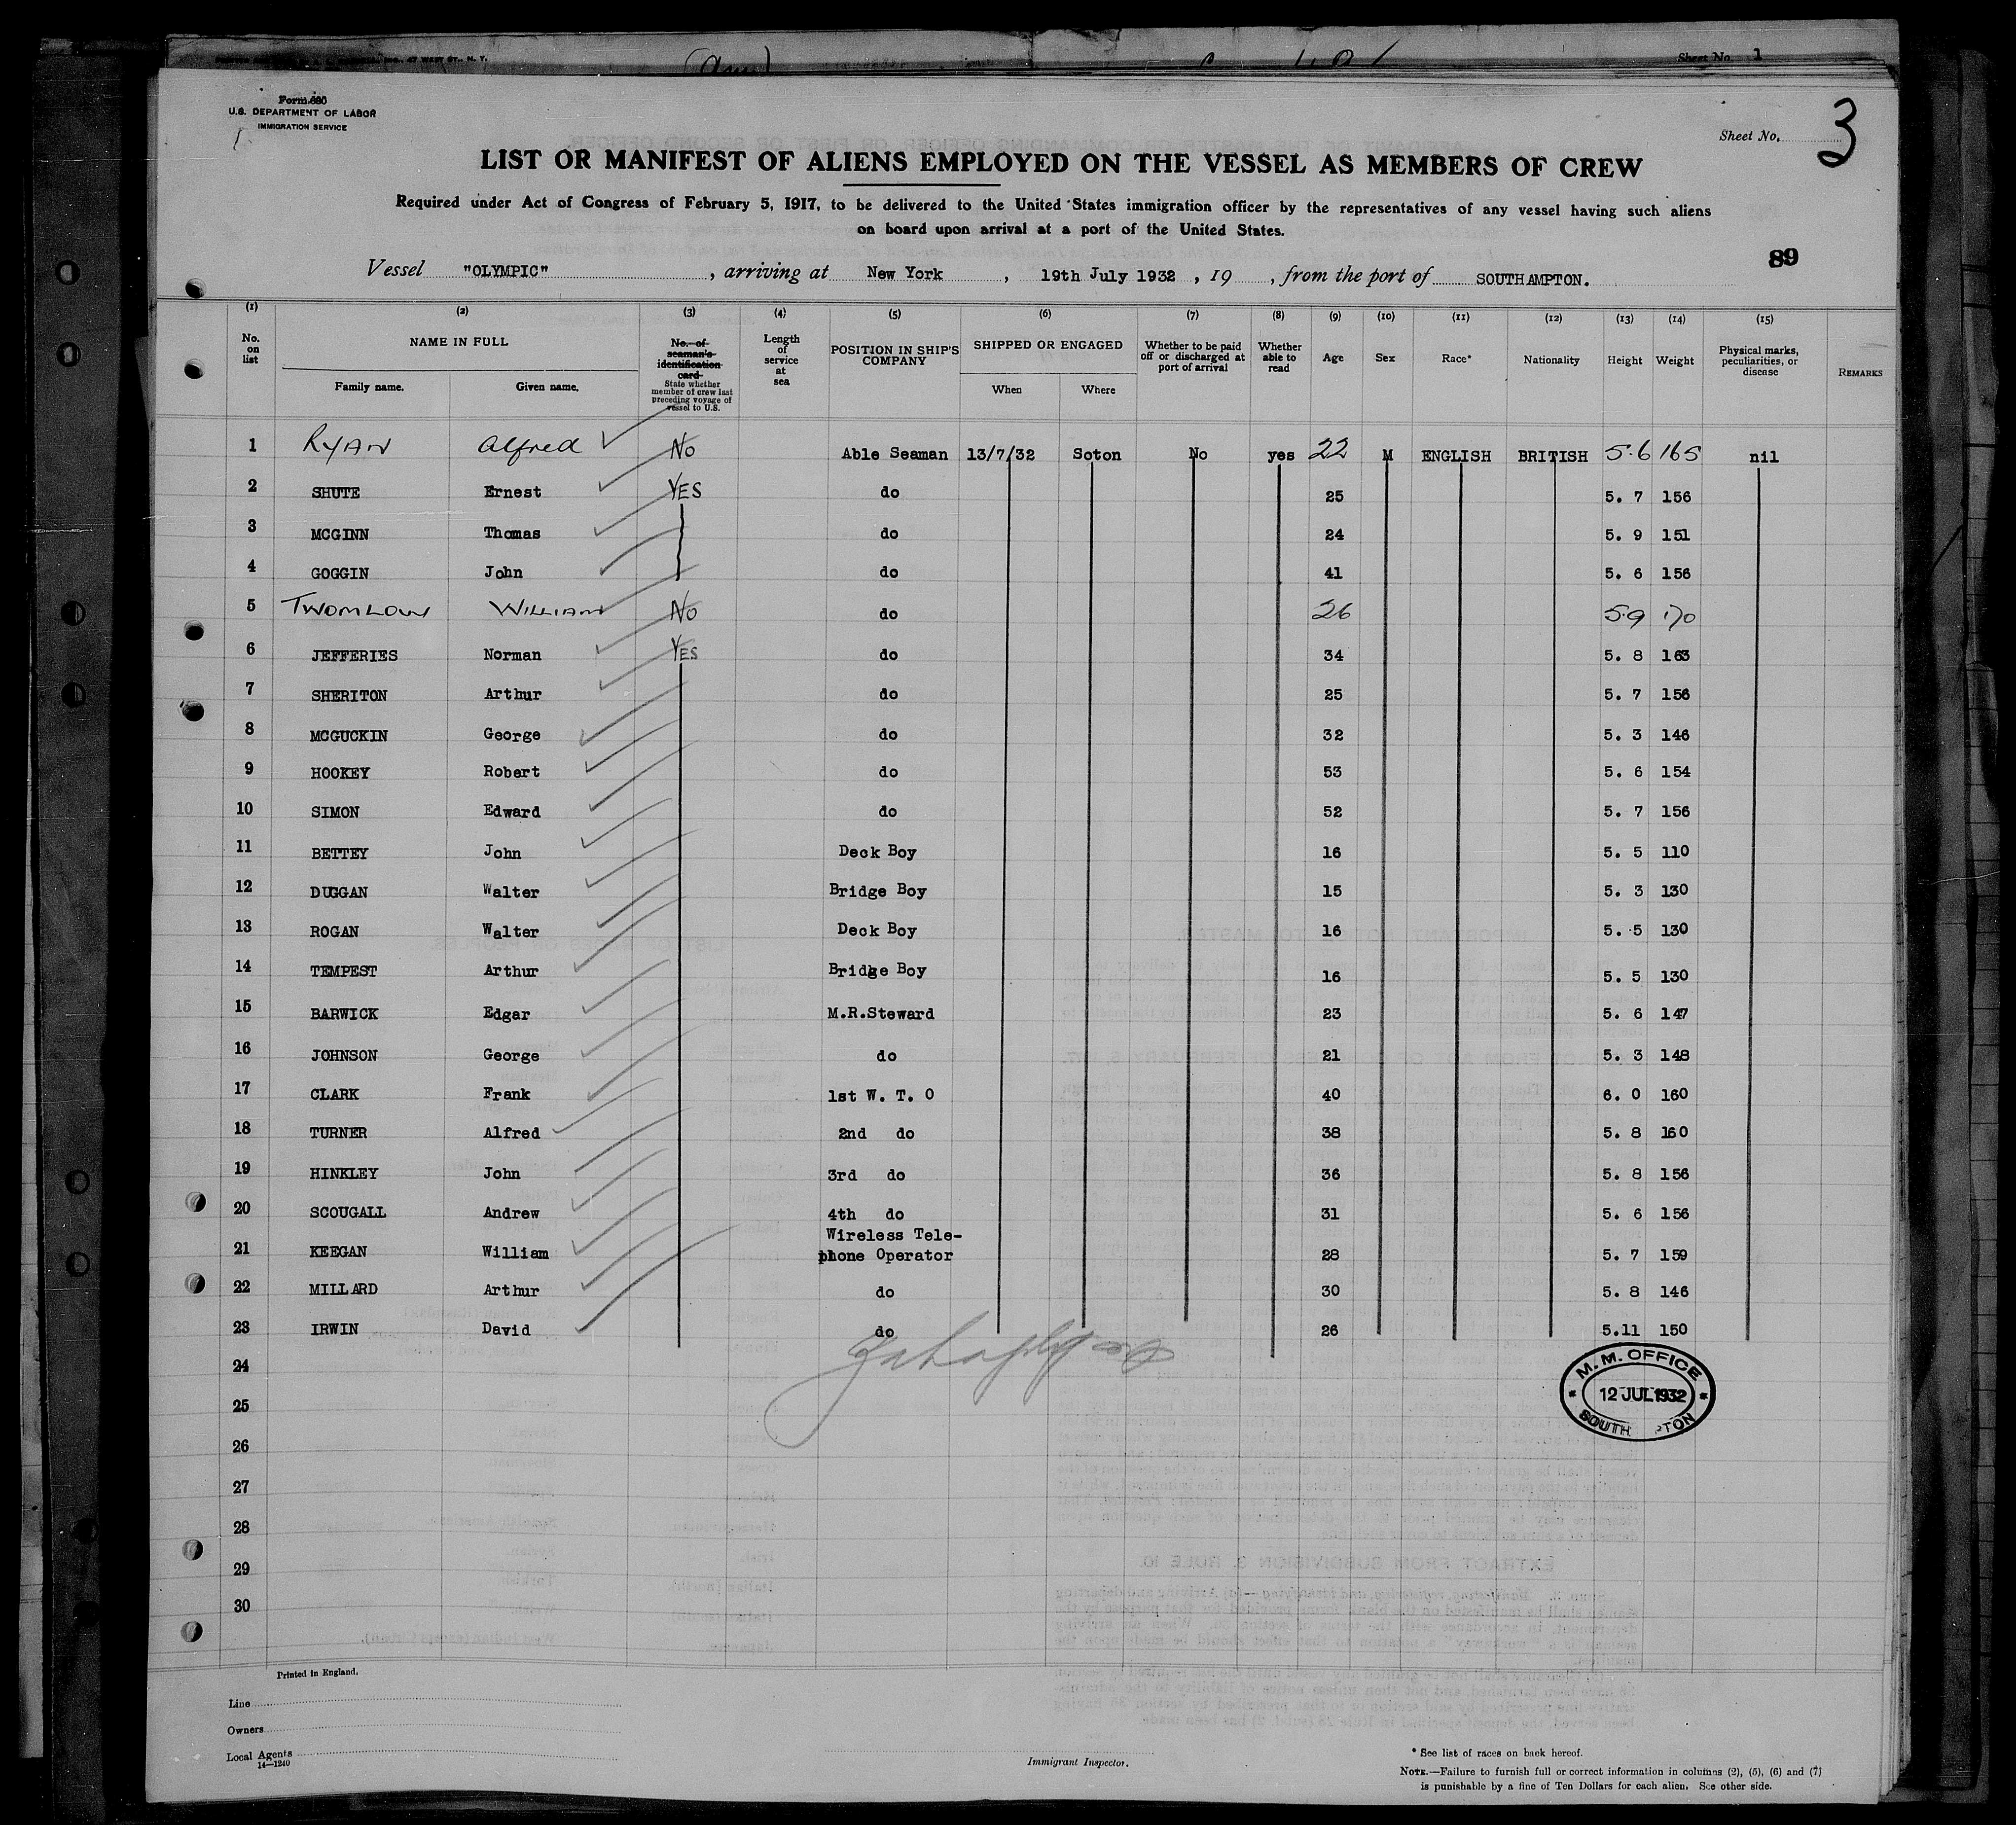 Sheet No. 1
Form 680
U.S. DEPARTMENT OF LABOR
IMMIGRATION SERVICE
Sheet No. 3
LIST OR MANIFEST OF ALIENS EMPLOYED ON THE VESSEL AS MEMBERS OF CREW
Required under Act of Congress of February 5, 1917, to be delivered to the United States immigration officer by the representatives of any vessel having such aliens
on board upon arrival at a port of the United States.
89
Vessel "OLYMPIC", arriving at New York, 19th July 1932, 19 , from the port of SOUTHAMPTON.
(1) (2) (3) (4) (5) (6) (7) (8) (9) (10) (11) (12) (13) (14) (15)
No. on list NAME IN FULL Family name. Given name. No. of seaman's identification card State whether member of crew last preceding voyage of vessel to U.S. Length of service at sea POSITION IN SHIP'S COMPANY SHIPPED OR ENGAGED When Where Whether to be paid off or discharged at port of arrival Whether able to read Age Sex Race* Nationality Height Weight Physical marks, peculiarities, or disease REMARKS
1 RYAN Alfred No Able Seaman 13/7/32 Soton No yes 22 M ENGLISH BRITISH 5.6 165 nil
2 SHUTE Ernest YES do 25 5. 7 156
3 MCGINN Thomas do 24 5. 9 151
4 GOGGIN John do 41 5. 6 156
5 TWOMLOW WILLIAM No do 26 5.9 170
6 JEFFERIES Norman YES do 34 5. 8 163
7 SHERITON Arthur do 25 5. 7 156
8 MCGUCKIN George do 32 5. 3 146
9 HOOKEY Robert do 53 5. 6 154
10 SIMON Edward do 52 5. 7 156
11 BETTEY John Deck Boy 16 5. 5 110
12 DUGGAN Walter Bridge Boy 15 5. 3 130
13 ROGAN Walter Deck Boy 16 5. 5 130
14 TEMPEST Arthur Bridge Boy 16 5. 5 130
15 BARWICK Edgar M.R.Steward 23 5. 6 147
16 JOHNSON George do 21 5. 3 148
17 CLARK Frank 1st W. T. O 40 6. 0 160
18 TURNER Alfred 2nd do 38 5. 8 160
19 HINKLEY John 3rd do 36 5. 8 156
20 SCOUGALL Andrew 4th do 31 5. 6 156
21 KEEGAN William Wireless Telephone Operator 28 5. 7 159
22 MILLARD Arthur do 30 5. 8 146
23 IRWIN David do 26 5.11 150
24
25
26
27
28
29
30
M. M. OFFICE
12 JUL 1932
SOUTH PTON
Printed in England.
Line
Owners
Local Agents
14—1240
Immigrant Inspector.
* See list of races on back hereof.
NOTE.—Failure to furnish full or correct information in columns (2), (5), (6) and (7)
is punishable by a fine of Ten Dollars for each alien. See other side.